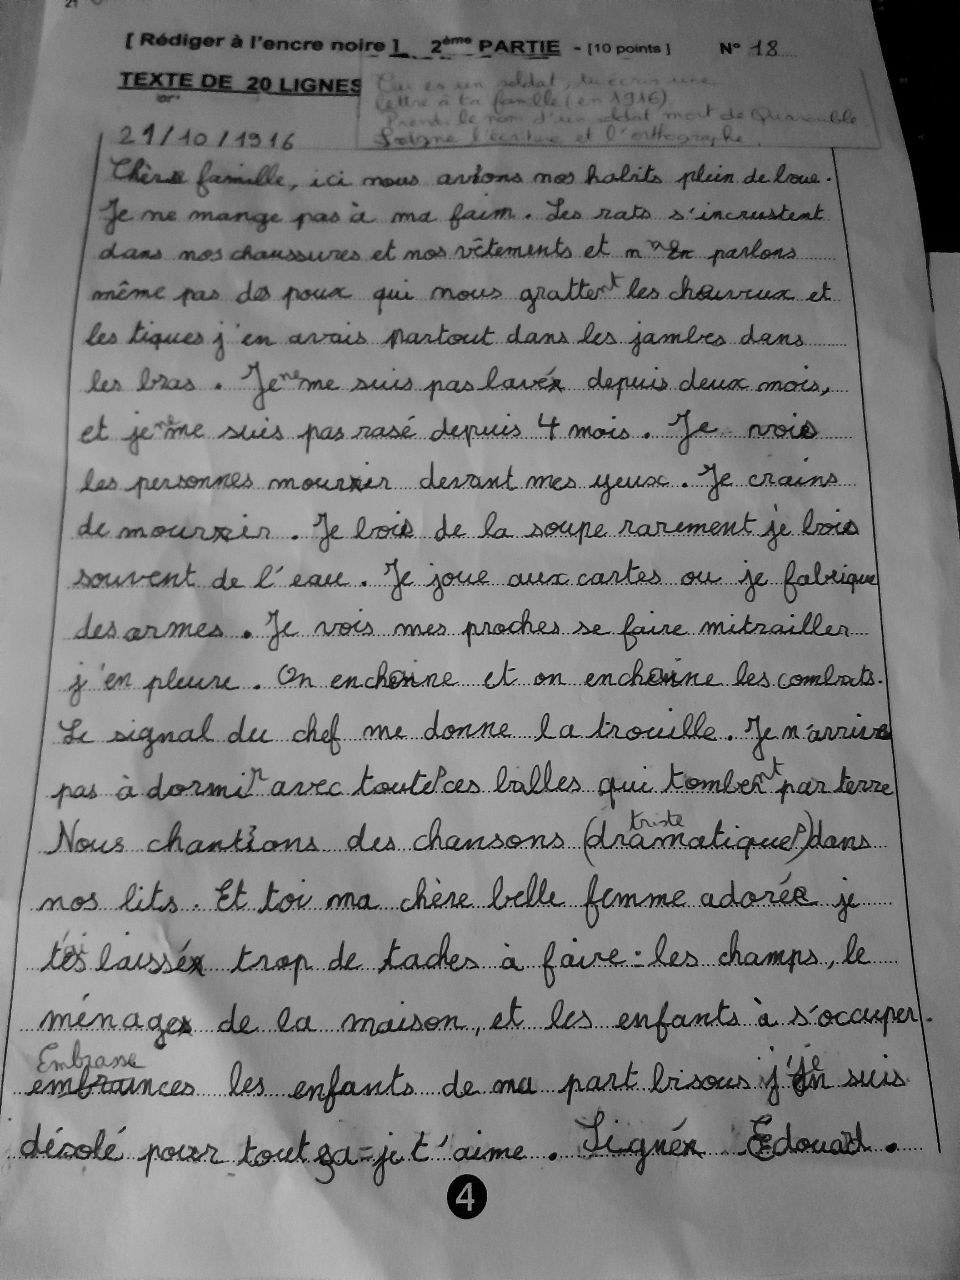 21
[ Rédiger à l'encre noire ] 2ème PARTIE - [10 points] N° 18
TEXTE DE 20 LIGNES
Tu es un soldat, tu écris une
lettre à ta famille (en 1916)
Prends le nom d'un soldat mort de Quarouble
Soigne l'écriture et l'orthographe.
21/10/1916
Chère famille, ici nous avions nos habits plein de boue.
Je ne mange pas à ma faim. Les rats s'incrustent
dans nos chaussures et nos vêtements et n'en parlons
même pas des poux qui nous grattent les cheuveux et
les tiques j'en avais partout dans les jambes dans
les bras. Je ne me suis pas lavé depuis deux mois,
et je ne me suis pas rasé depuis 4 mois. Je vois
les personnes mourir devant mes yeux. Je crains
de mourir. Je bois de la soupe rarement je bois
souvent de l'eau. Je joue aux cartes ou je fabrique
des armes. Je vois mes proches se faire mitrailler
j'en pleure. On enchaine et on enchaine les combats.
Le signal du chef me donne la trouille. Je n'arrive
pas à dormir avec toutes ces balles qui tombent par terre
triste
Nous chantions des chansons (dramatiques) dans
nos lits. Et toi ma chère belle femme adorée je
laissé trop de taches à faire : les champs, le
ménage de la maison, et les enfants à s'occuper.
Embrasse
les enfants de ma part bisous je suis
désolé pour tout ça = je t'aime. Signé Edouard.
4